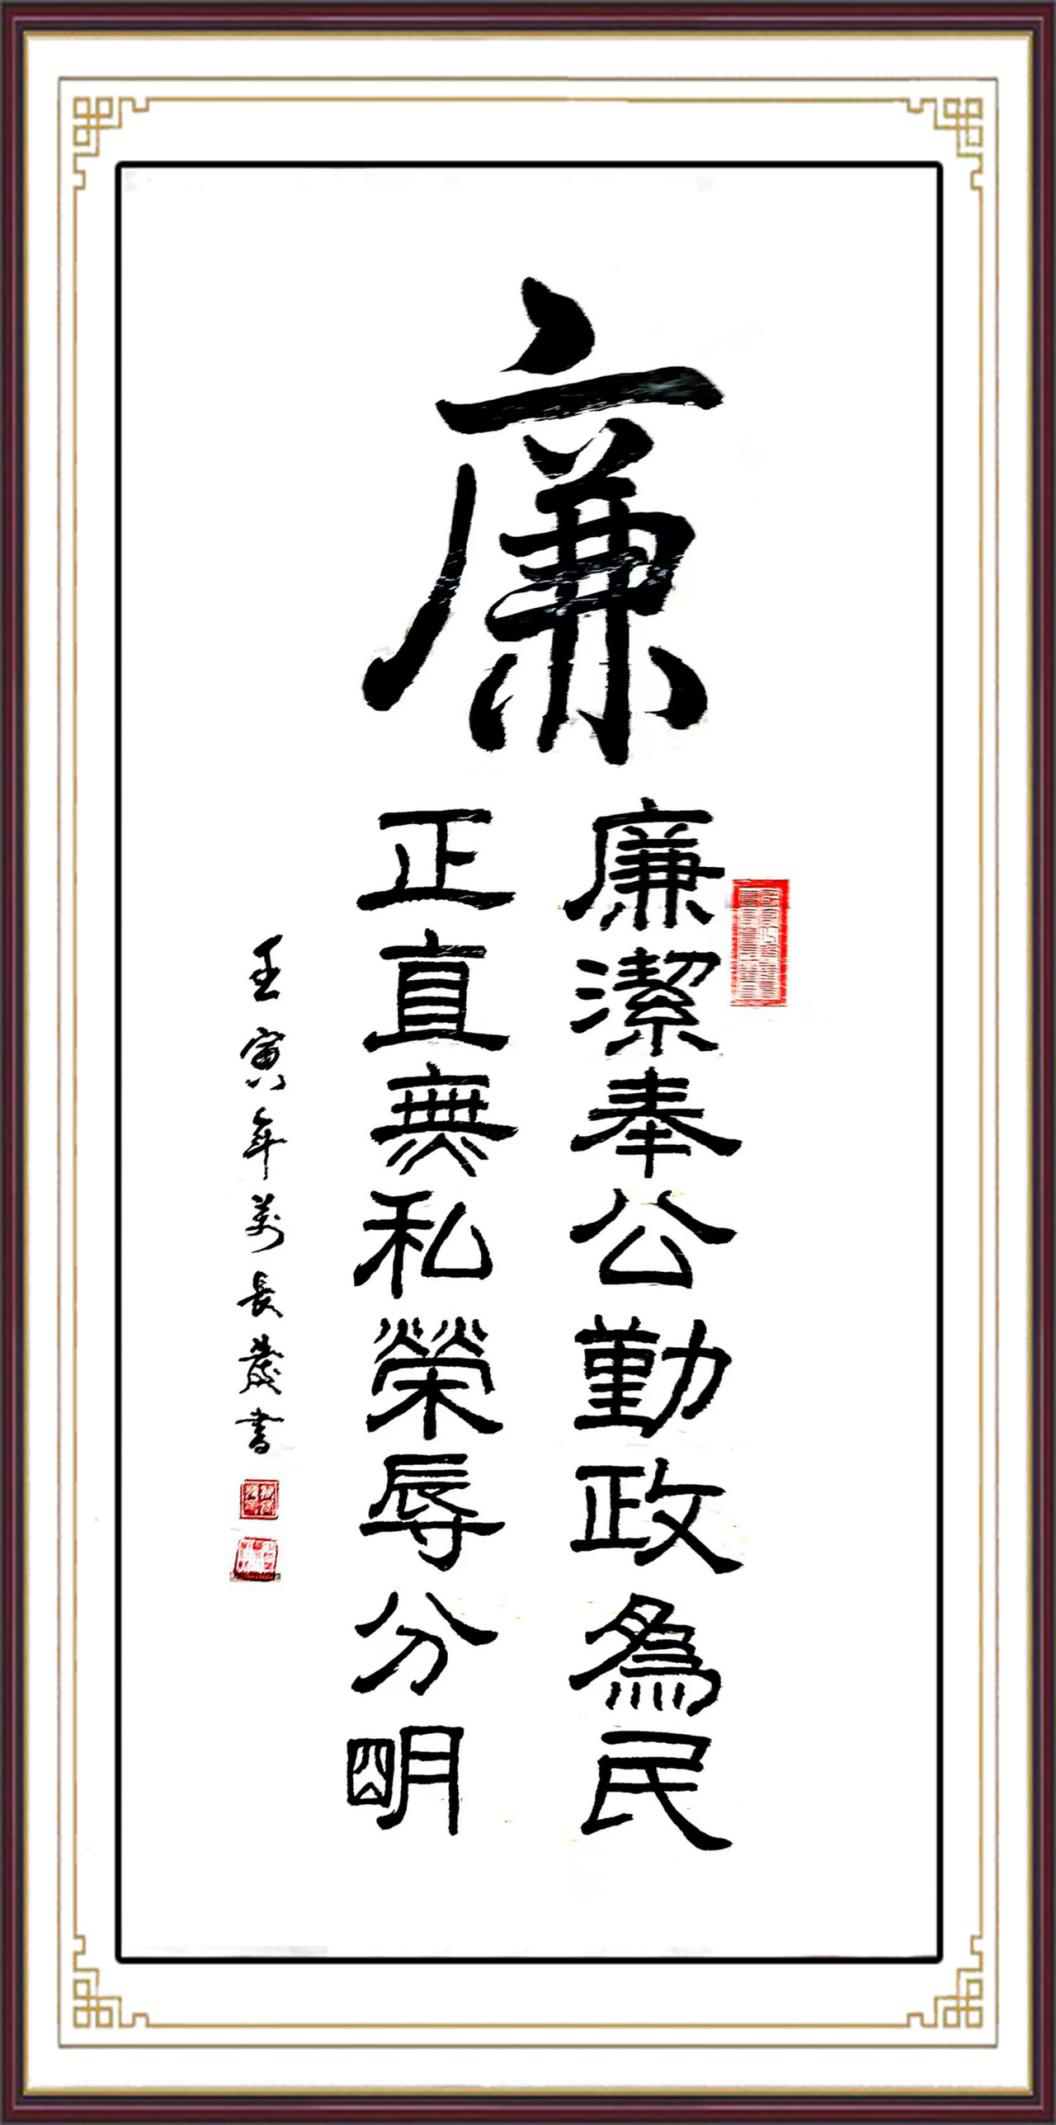 廉
廉潔奉公勤政為民
正直無私榮辱分明
壬寅年万長歲書